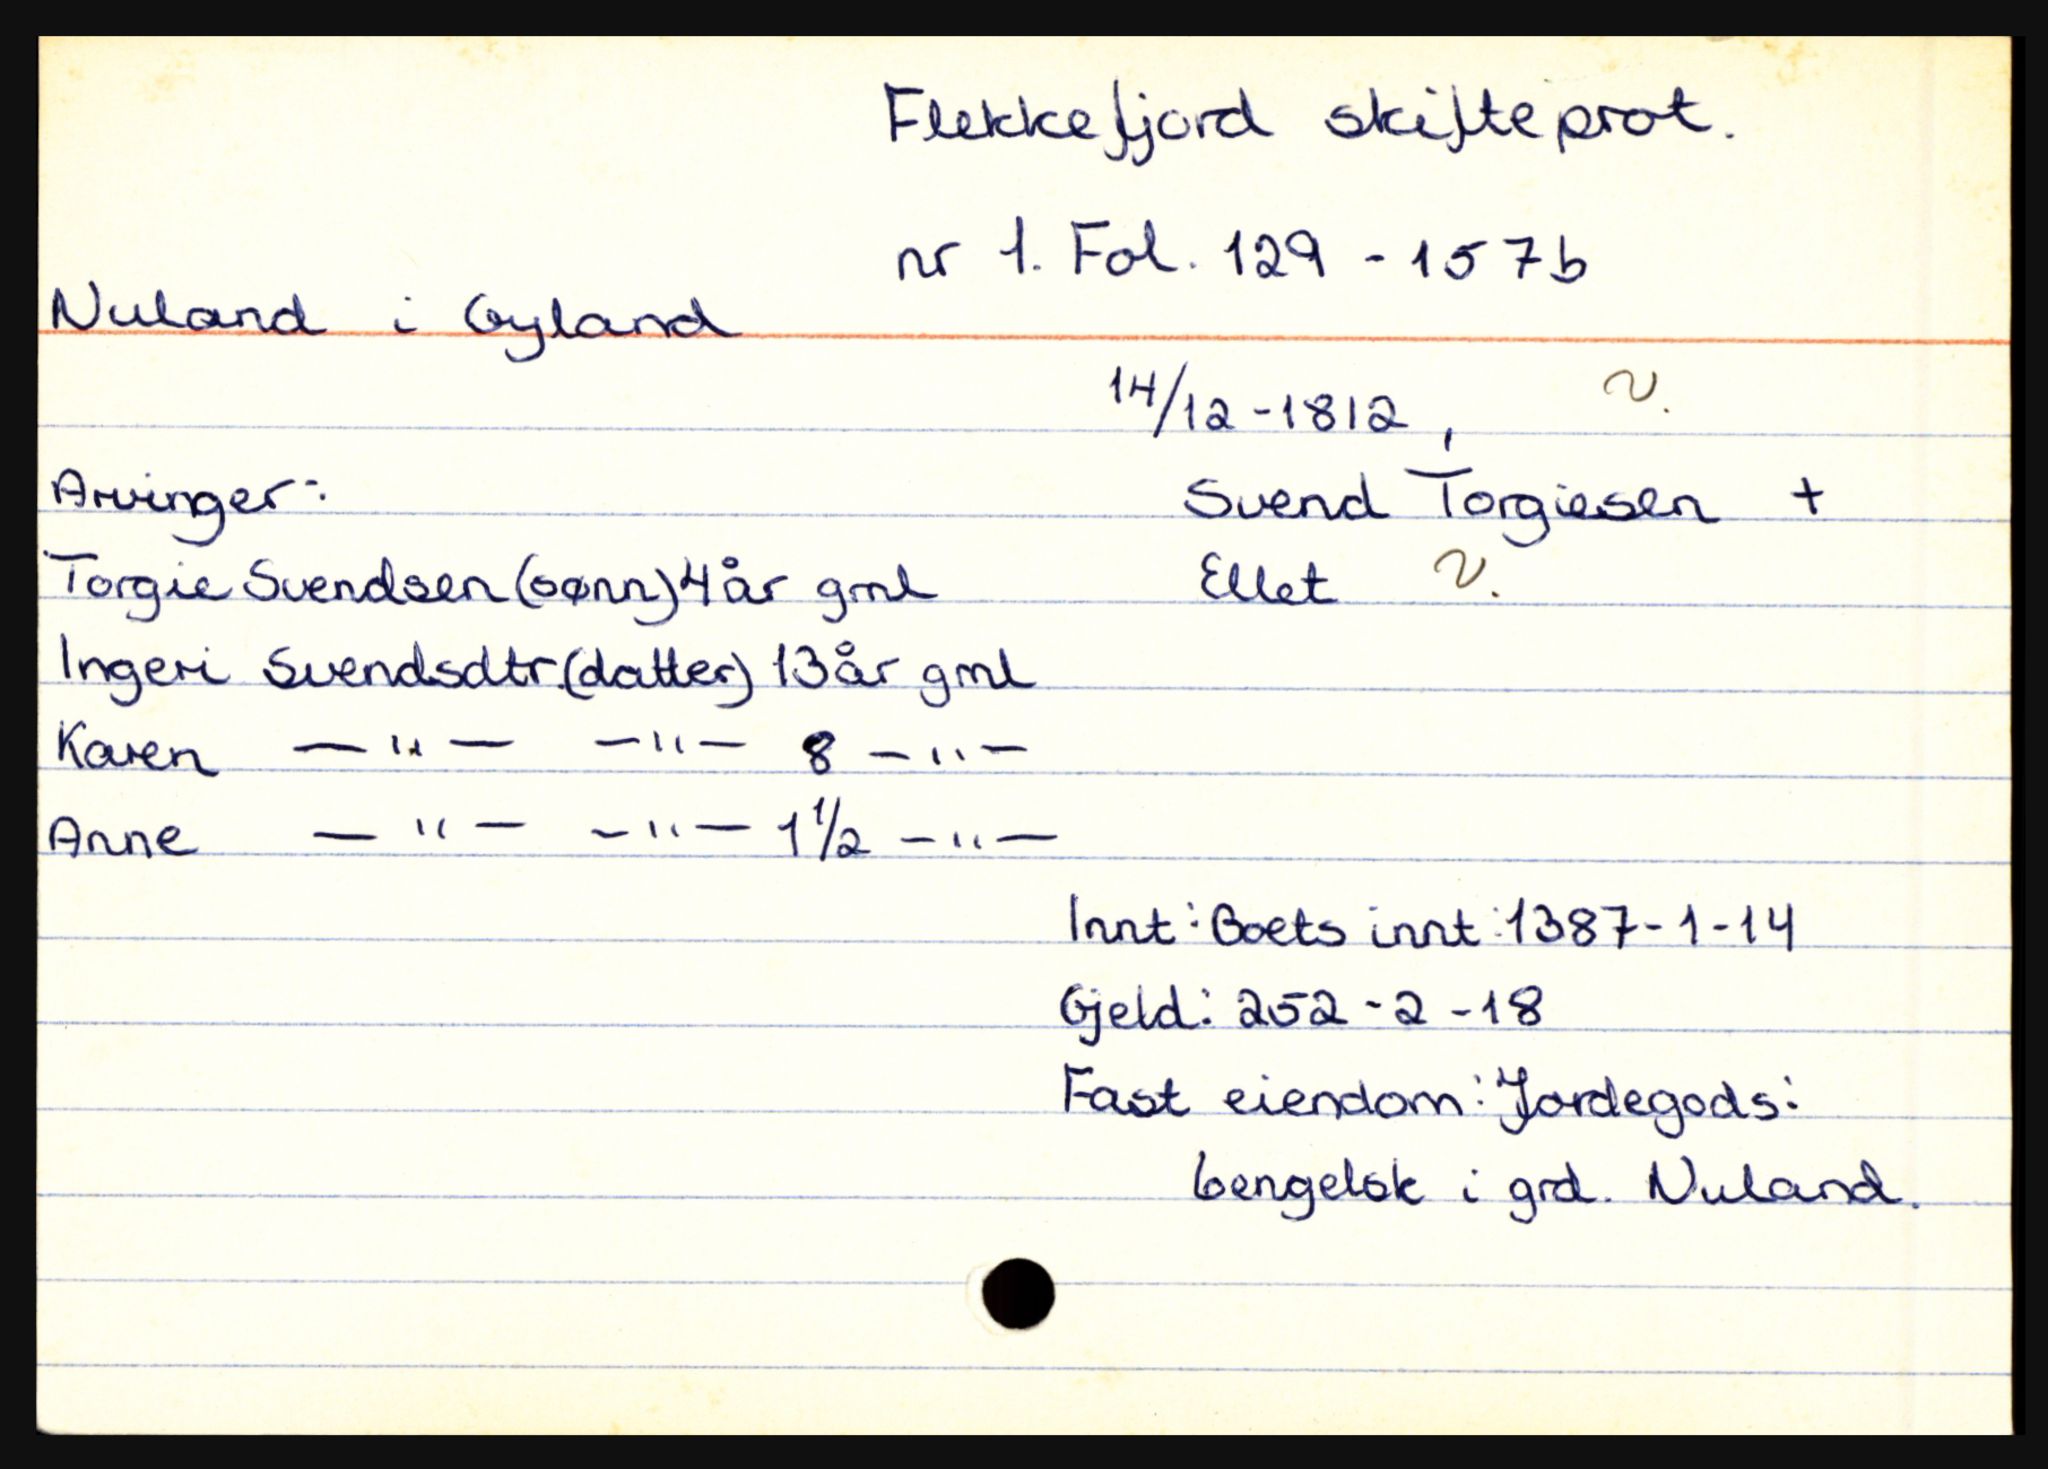 Flekkefjord skifteprot.
nr 1. Fol. 129 - 157b
Nuland i Gyland
14/12-1812, v.
Arvinger: Svend Torgiesen +
Torgie Svendsen (sønn) 4 år gml Ellet v.
Ingeri Svendsdtr. (datter) 13 år gml
Karen —"— —"— 8 —"—
Anne —"— —"— 1 1/2 —"—
Innt: Boets innt: 1387-1-14
Gjeld: 252-2-18
Fast eiendom: Jordegods:
6engelsk i grd. Nuland.